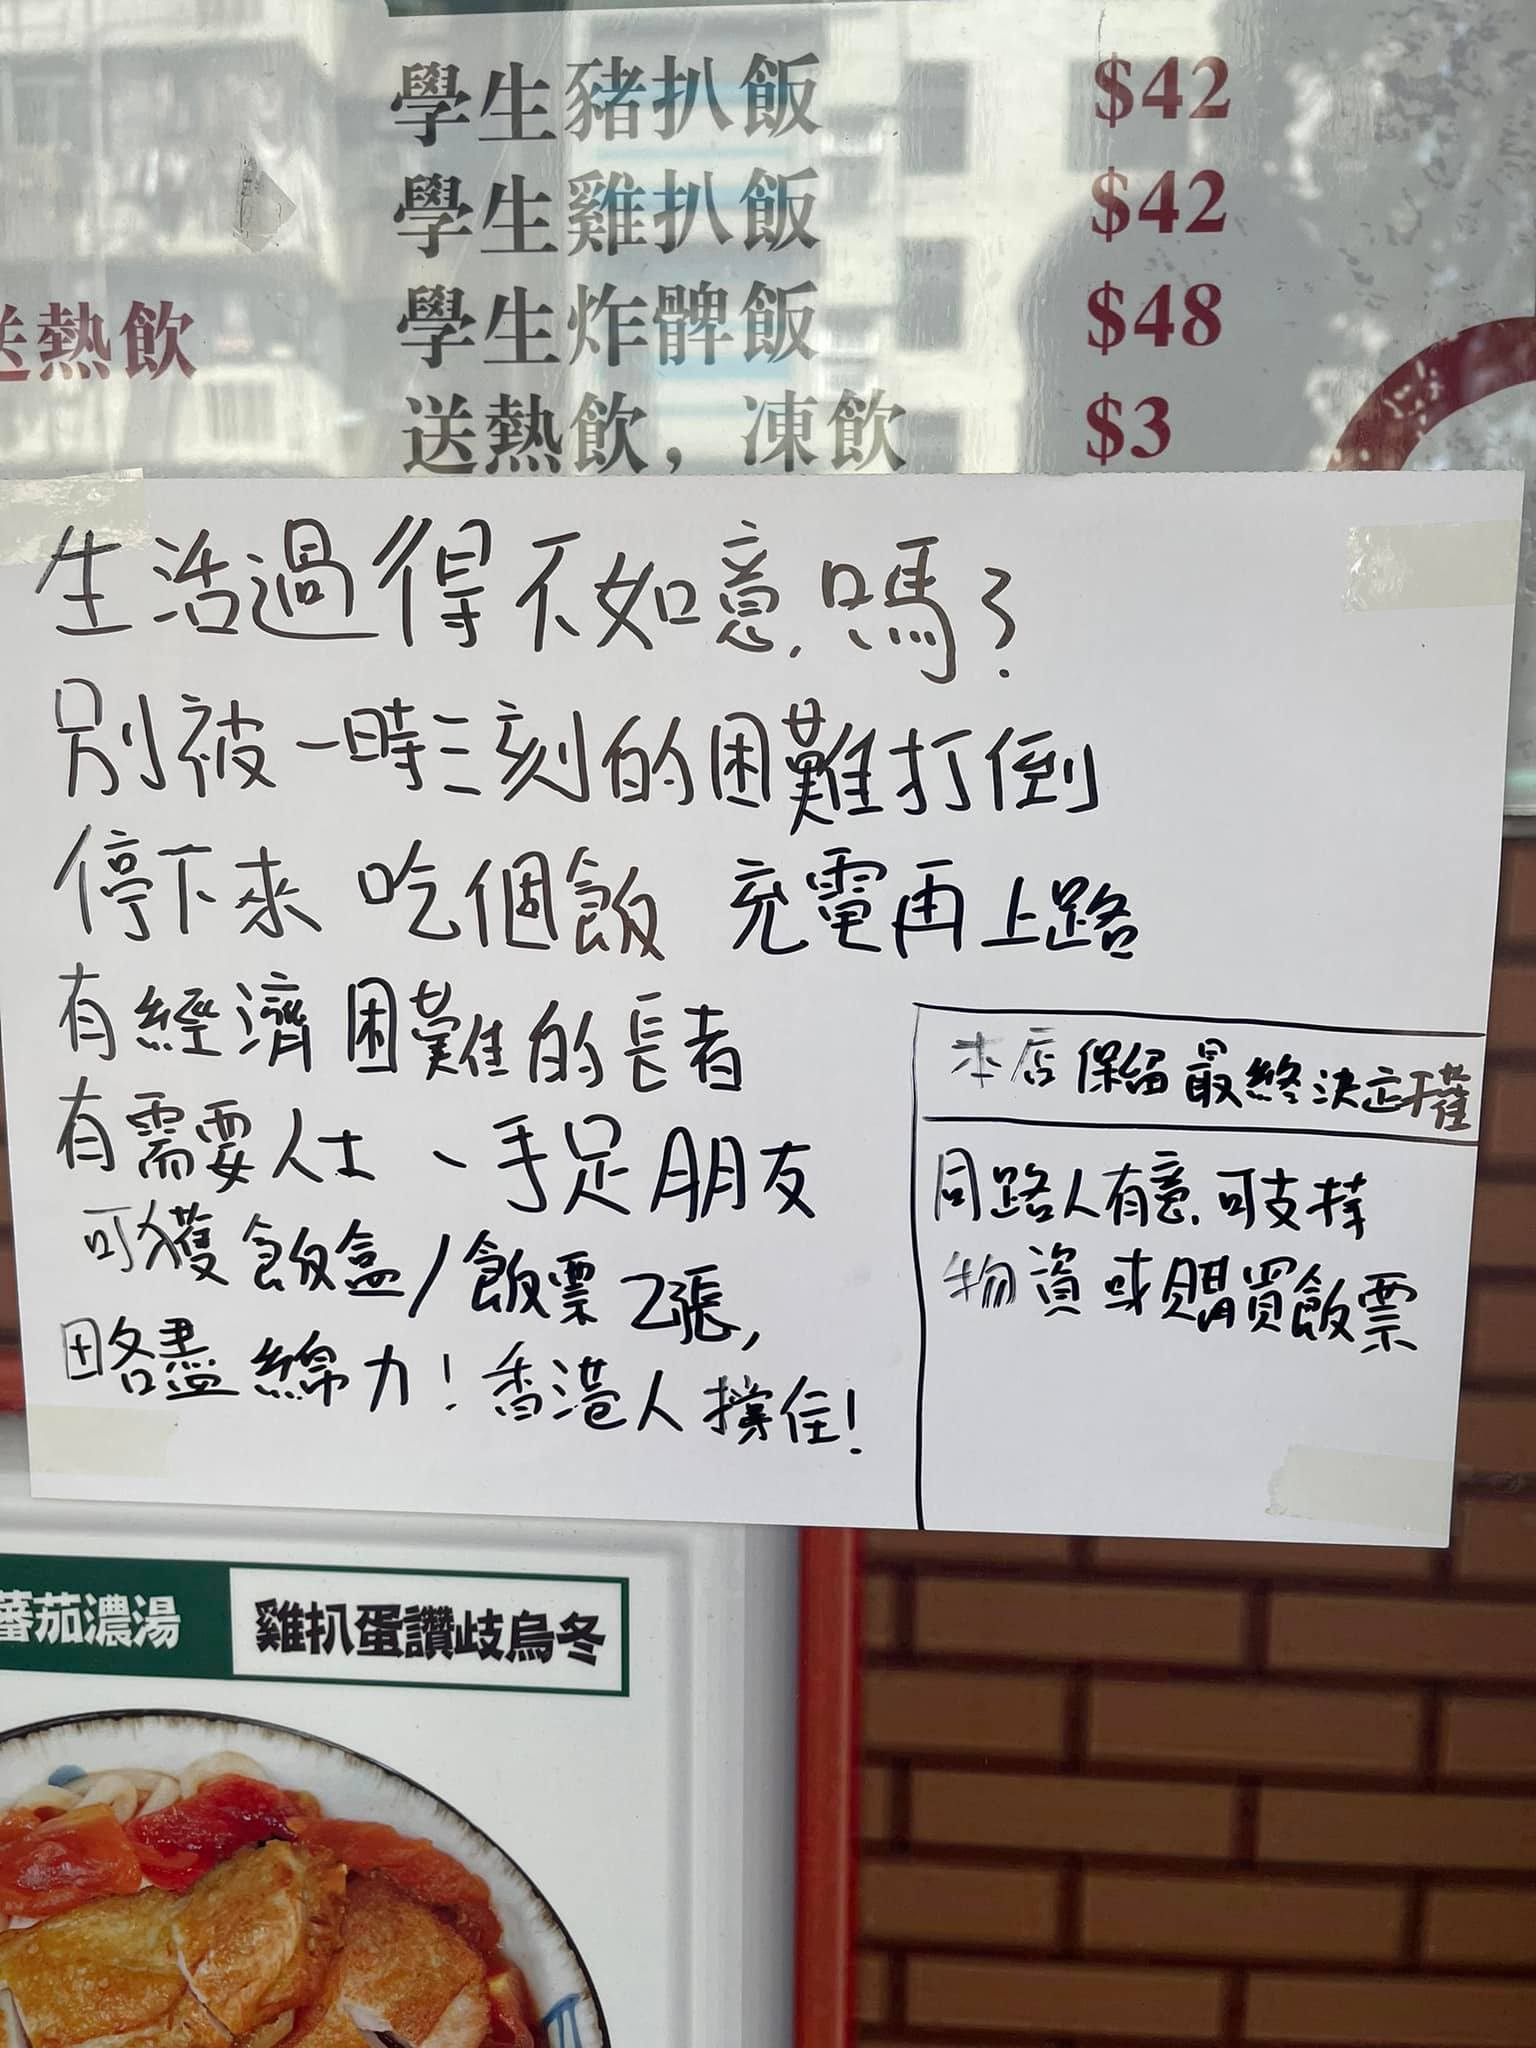 學生豬扒飯 $42
學生雞扒飯 $42
學生炸髀飯 $48
送熱飲
送熱飲，凍飲 $3
生活過得不如意嗎？
別被一時三刻的困難打倒
停下來 吃個飯 充電再上路
有經濟困難的長者
有需要人士、手足朋友
可獲飯盒/飯票2張,
略盡綿力！香港人撐住！
本店保留最終決定權
同路人有意可支持
物資或購買飯票
蕃茄濃湯
雞扒蛋讚歧烏冬